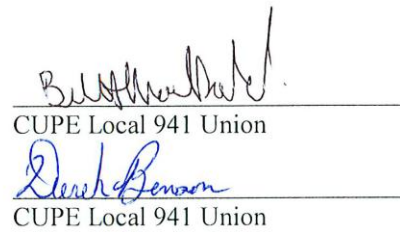 CUPE Local 941 Union
Derek Benson
CUPE Local 941 Union